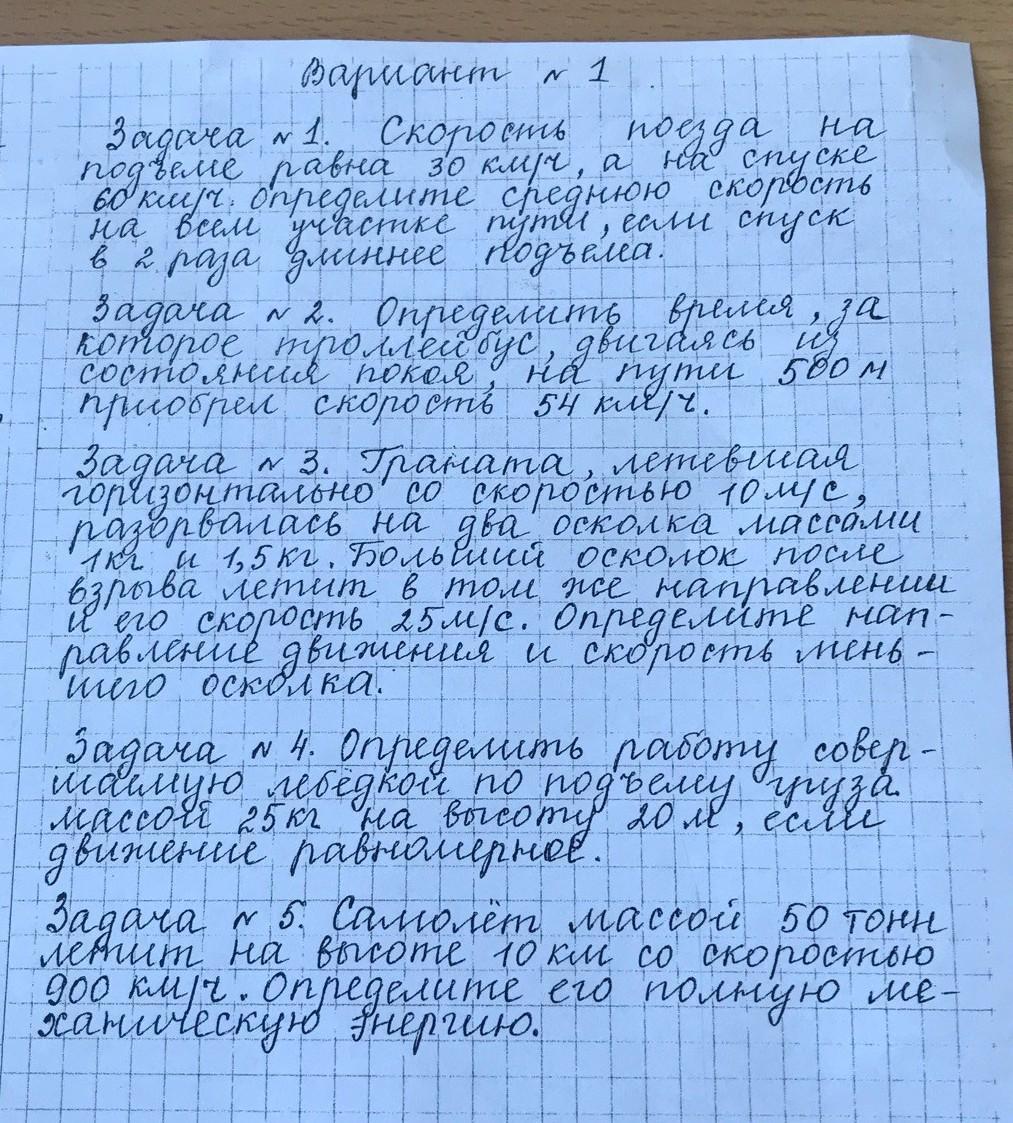 Вариант № 1
Задача № 1. Скорость поезда на
подъеме равна 30 км/ч, а на спуске
60 км/ч. Определите среднюю скорость
на всем участке пути, если спуск
в 2 раза длиннее подъема.
Задача № 2. Определить время, за
которое троллейбус, двигаясь из
состояния покоя, на пути 500 м
приобрел скорость 54 км/ч.
Задача № 3. Граната, летевшая
горизонтально со скоростью 10 м/с,
разорвалась на два осколка массами
1кг и 1,5кг. Больший осколок после
взрыва летит в том же направлении
и его скорость 25м/с. Определите нап-
равление движения и скорость мень-
шего осколка.
Задача № 4. Определить работу совер-
шаемую лебёдкой по подъему груза
массой 25кг на высоту 20 м, если
движение равномерное.
Задача № 5. Самолёт массой 50 тонн
летит на высоте 10 км со скоростью
900 км/ч. Определите его полную ме-
ханическую энергию.